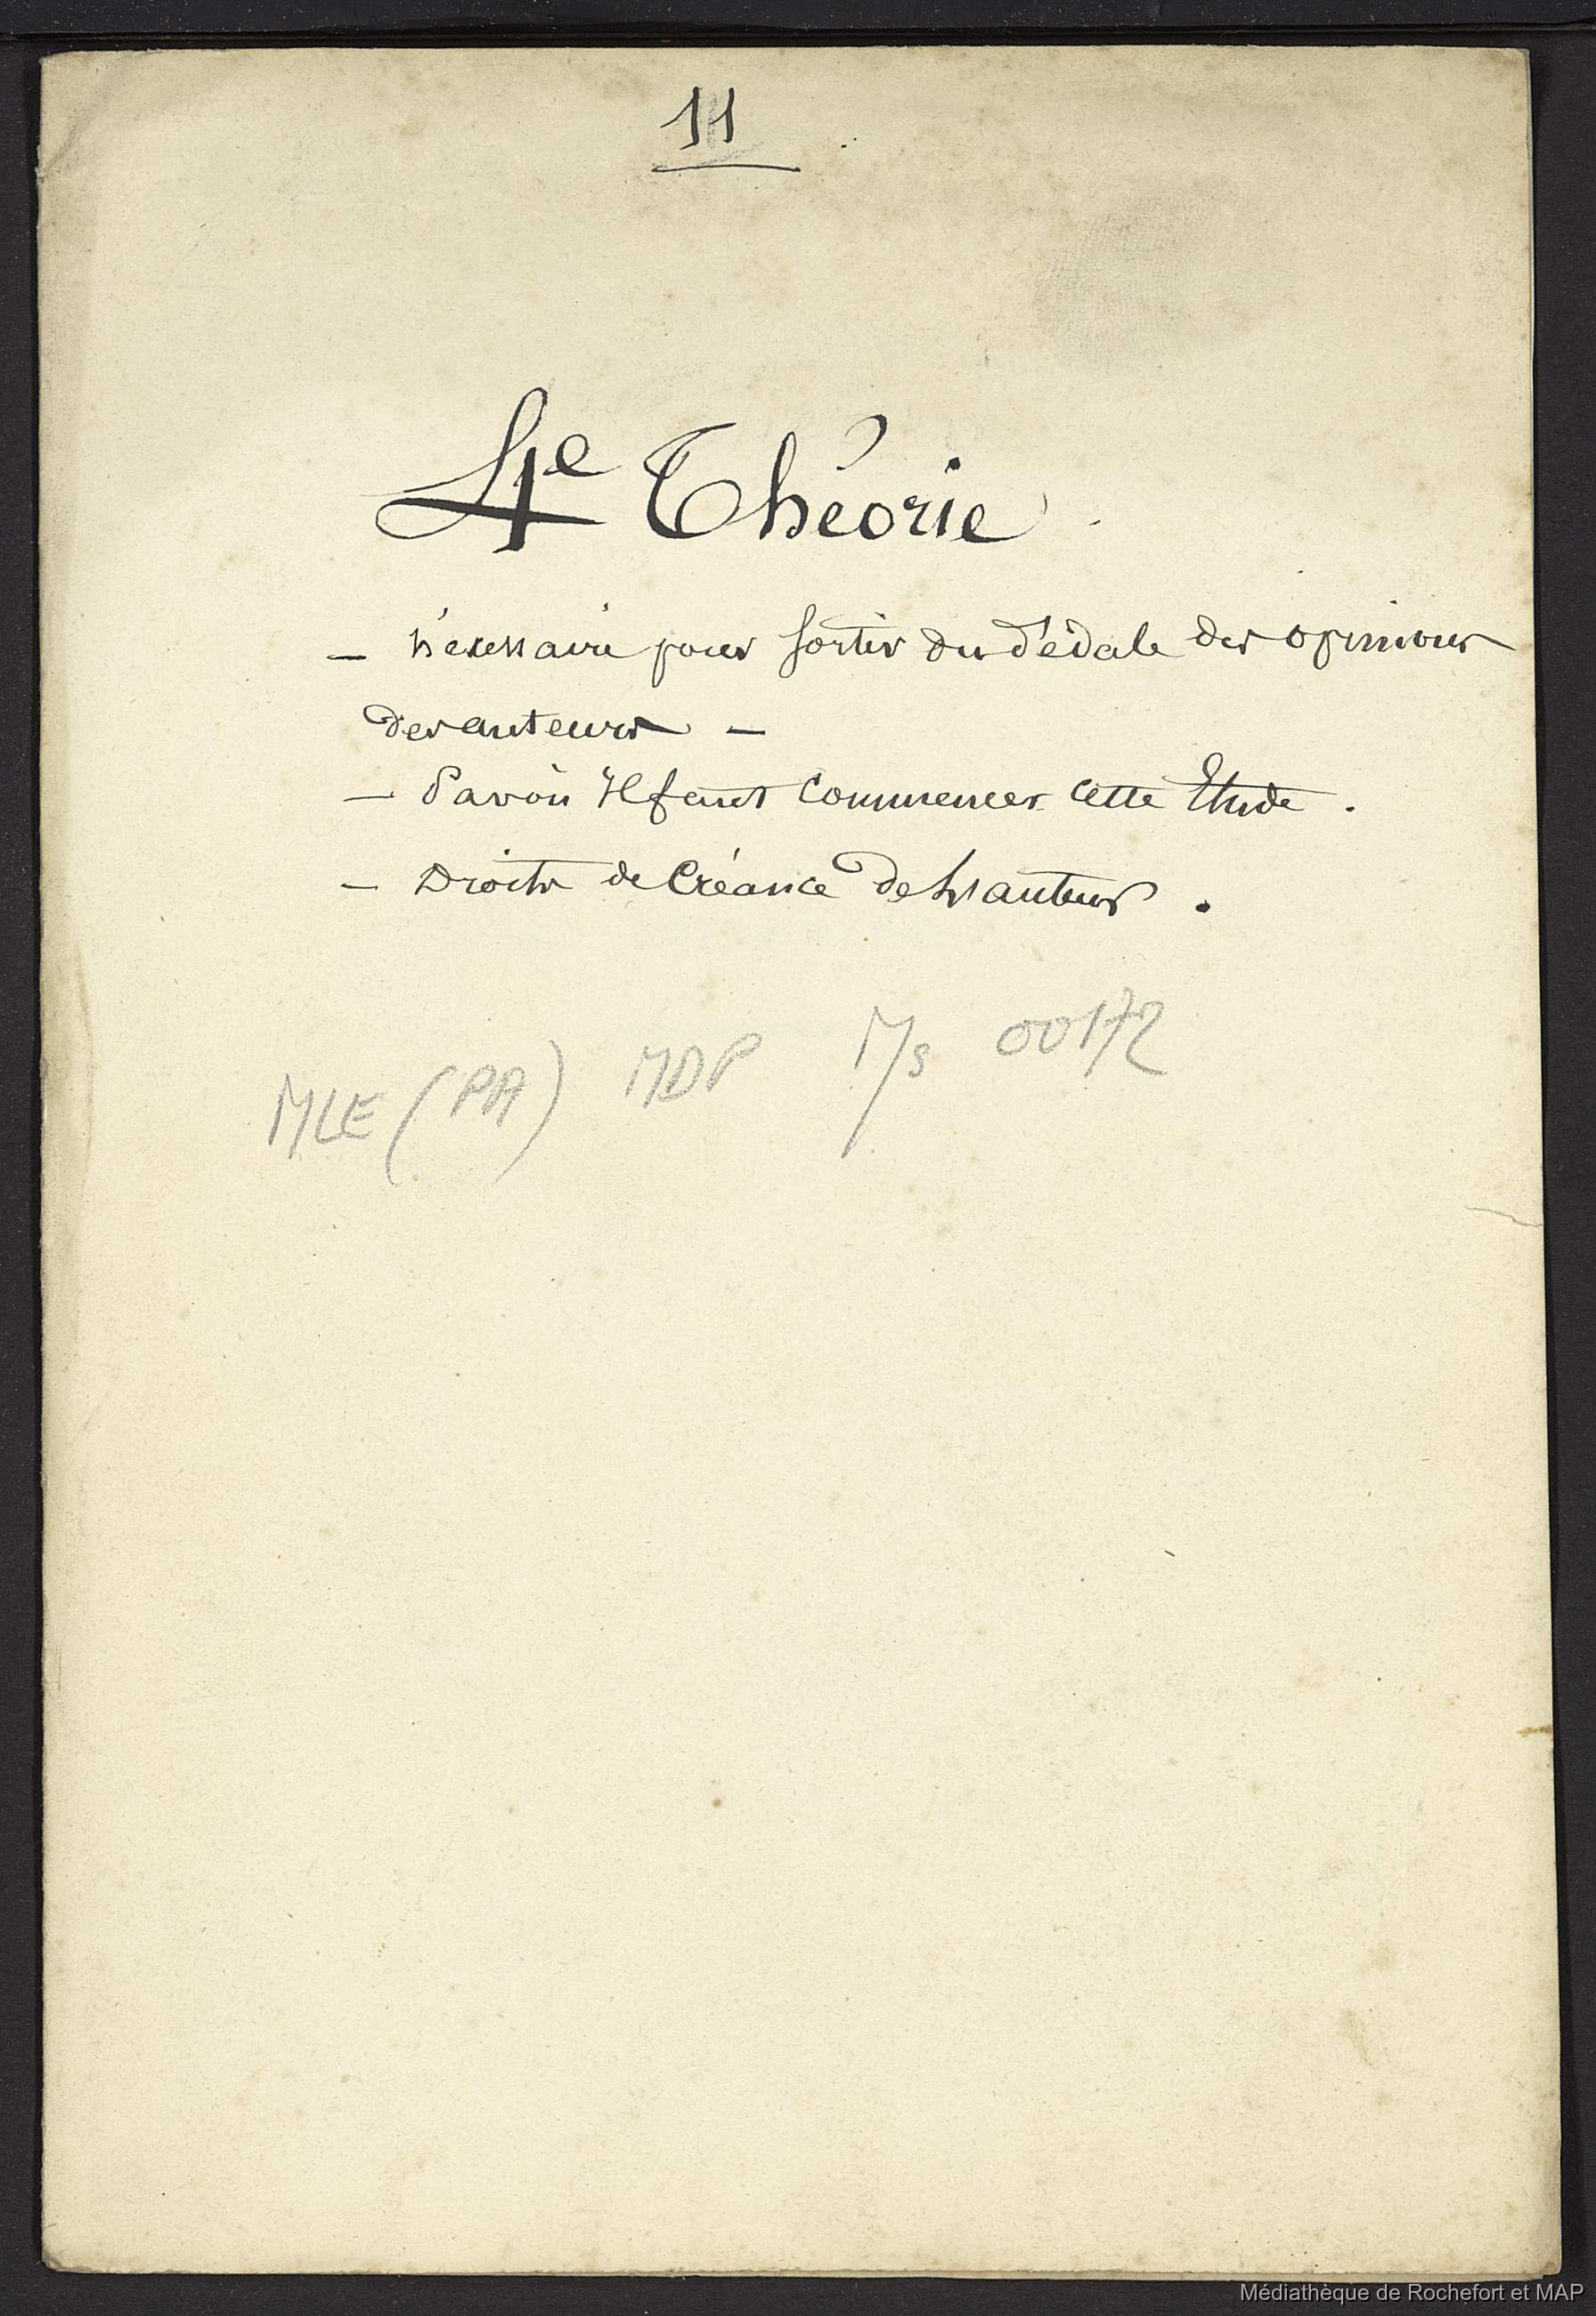 11
4e Théorie
— Nécessaire pour sortir du dédale des opinions
des auteurs —
— Par où Il faut Commencer cette Etude .
— Droits de Créance de les auteurs .
MLE (PA) MDP M/s 00172
Médiathèque de Rochefort et MAP